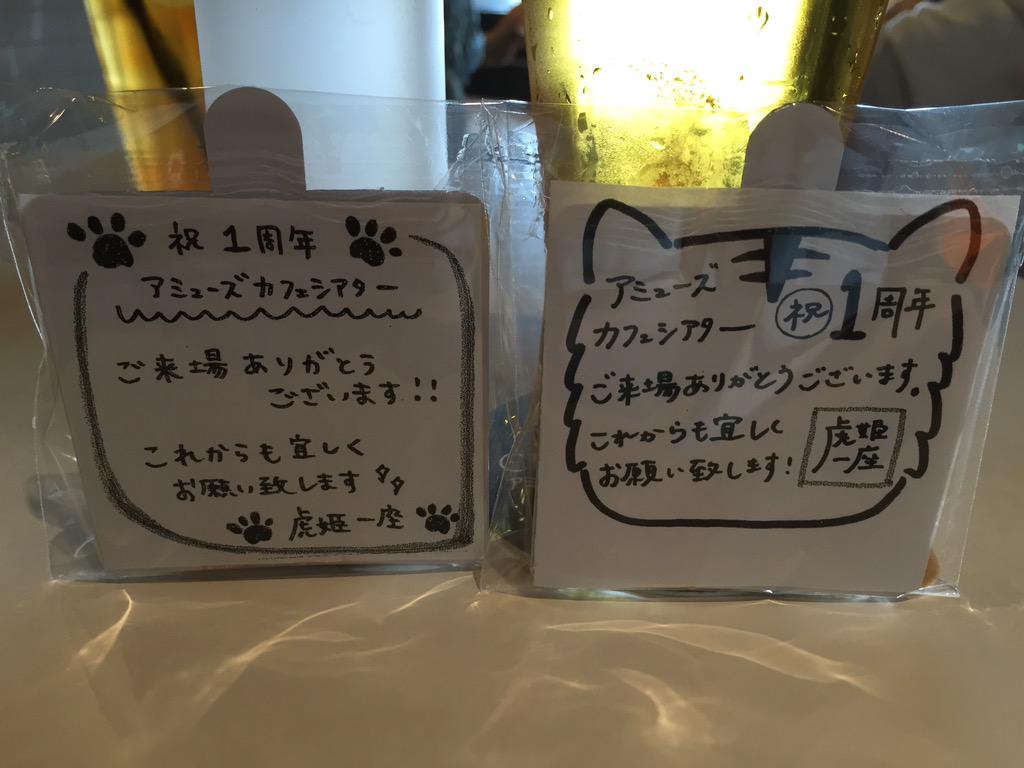 祝 1周年
アミューズカフェシアター
ご来場ありがとう
ございます!!
これからも宜しく
お願い致します
虎姫一座
アミューズ
カフェシアター ㊗1周年
ご来場ありがとうございます。
これからも宜しく
お願い致します!
虎姫
一座